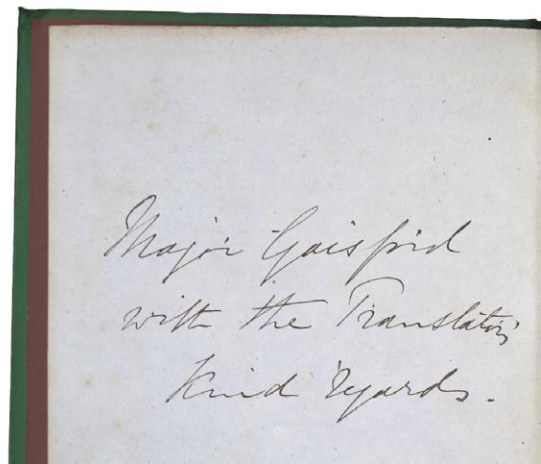 Major Gaisford
with the Translator's
Kind regards.